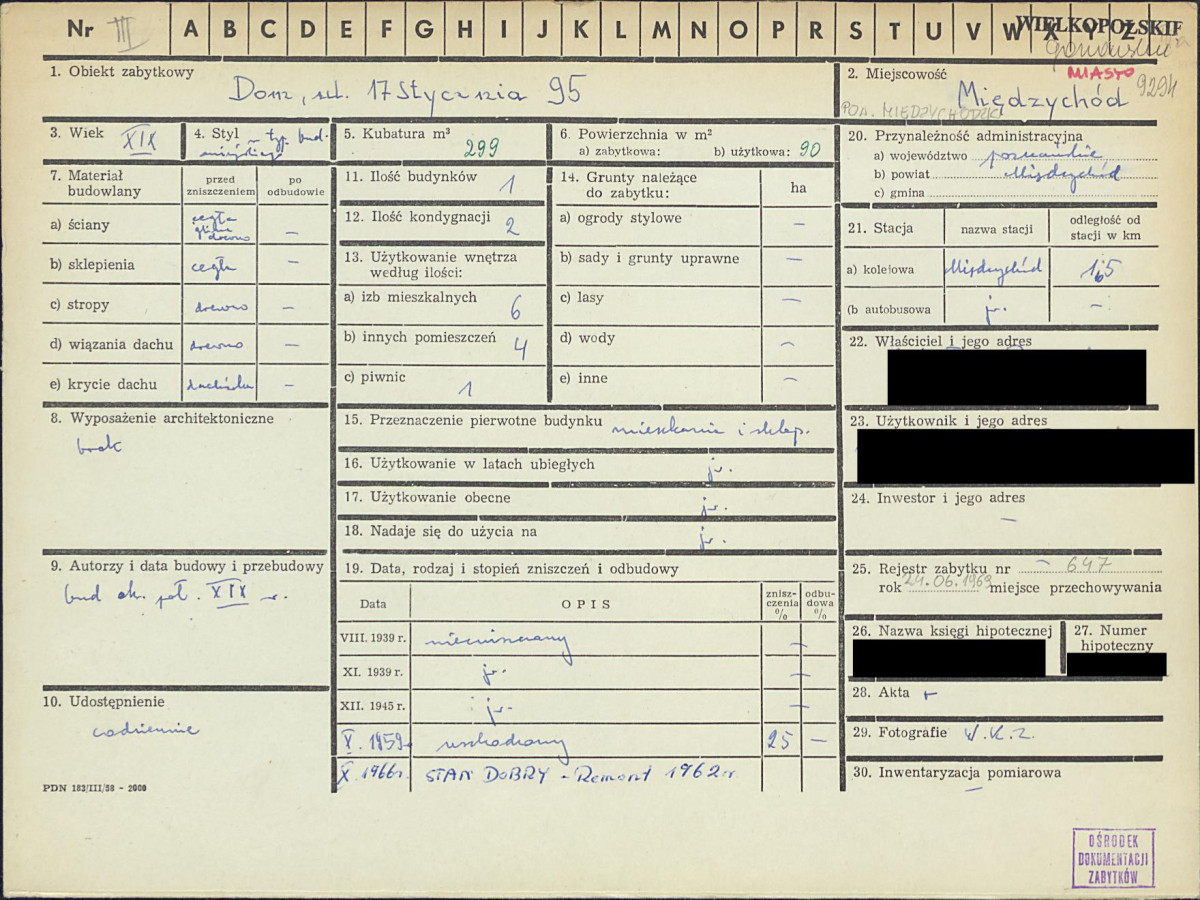 Nr III A B C D E F G H I J K L M N O P R S T U V W X Y Z
WIELKOPOLSKIE
1. Obiekt zabytkowy
Dom, ul. 17 Stycznia 95
2. Miejscowość
MIASTO
9294
Międzychód
POW. MIĘDZYCHODZKI
3. Wiek XIX
4. Styl – typ. bud-
5. Kubatura m³
299
6. Powierzchnia w m²
a) zabytkowa: b) użytkowa: 90
20. Przynależność administracyjna
a) województwo poznańskie
b) powiat Międzychód
c) gmina
7. Materiał budowlany
przed zniszczeniem
po odbudowie
a) ściany
cegła
glina
drewno
–
b) sklepienia cegła –
c) stropy drewno –
d) wiązania dachu drewno –
e) krycie dachu dachówka –
11. Ilość budynków 1
12. Ilość kondygnacji 2
13. Użytkowanie wnętrza
według ilości:
a) izb mieszkalnych 6
b) innych pomieszczeń 4
c) piwnic 1
14. Grunty należące
do zabytku:
ha
a) ogrody stylowe –
b) sady i grunty uprawne –
c) lasy –
d) wody –
e) inne –
21. Stacja
nazwa stacji
odległość od
stacji w km
a) kolejowa Międzychód 1,5
(b autobusowa j.w. –
22. Właściciel i jego adres
23. Użytkownik i jego adres
24. Inwestor i jego adres
–
8. Wyposażenie architektoniczne
brak
15. Przeznaczenie pierwotne budynku mieszkania i sklep.
16. Użytkowanie w latach ubiegłych j.w.
17. Użytkowanie obecne j.w.
18. Nadaje się do użycia na j.w.
9. Autorzy i data budowy i przebudowy
bud ok. poł. XIX w.
19. Data, rodzaj i stopień zniszczeń i odbudowy
Data
OPIS
znisz-
czenia
%
odbu-
dowa
%
VIII. 1939 r. niezniszczony –
XI. 1939 r. j.w. –
XII. 1945 r. j.w. –
X. 1959 r. uszkodzony 25 –
X. 1966 r. STAN DOBRY – Remont 1962 r.
25. Rejestr zabytku nr – 647
rok 24.06.1969 miejsce przechowywania
26. Nazwa księgi hipotecznej
27. Numer
hipoteczny
28. Akta +
29. Fotografie W.K.Z.
30. Inwentaryzacja pomiarowa
–
10. Udostępnienie
codziennie
PDN 183/III/58 - 2000
OŚRODEK
DOKUMENTACJI
ZABYTKÓW